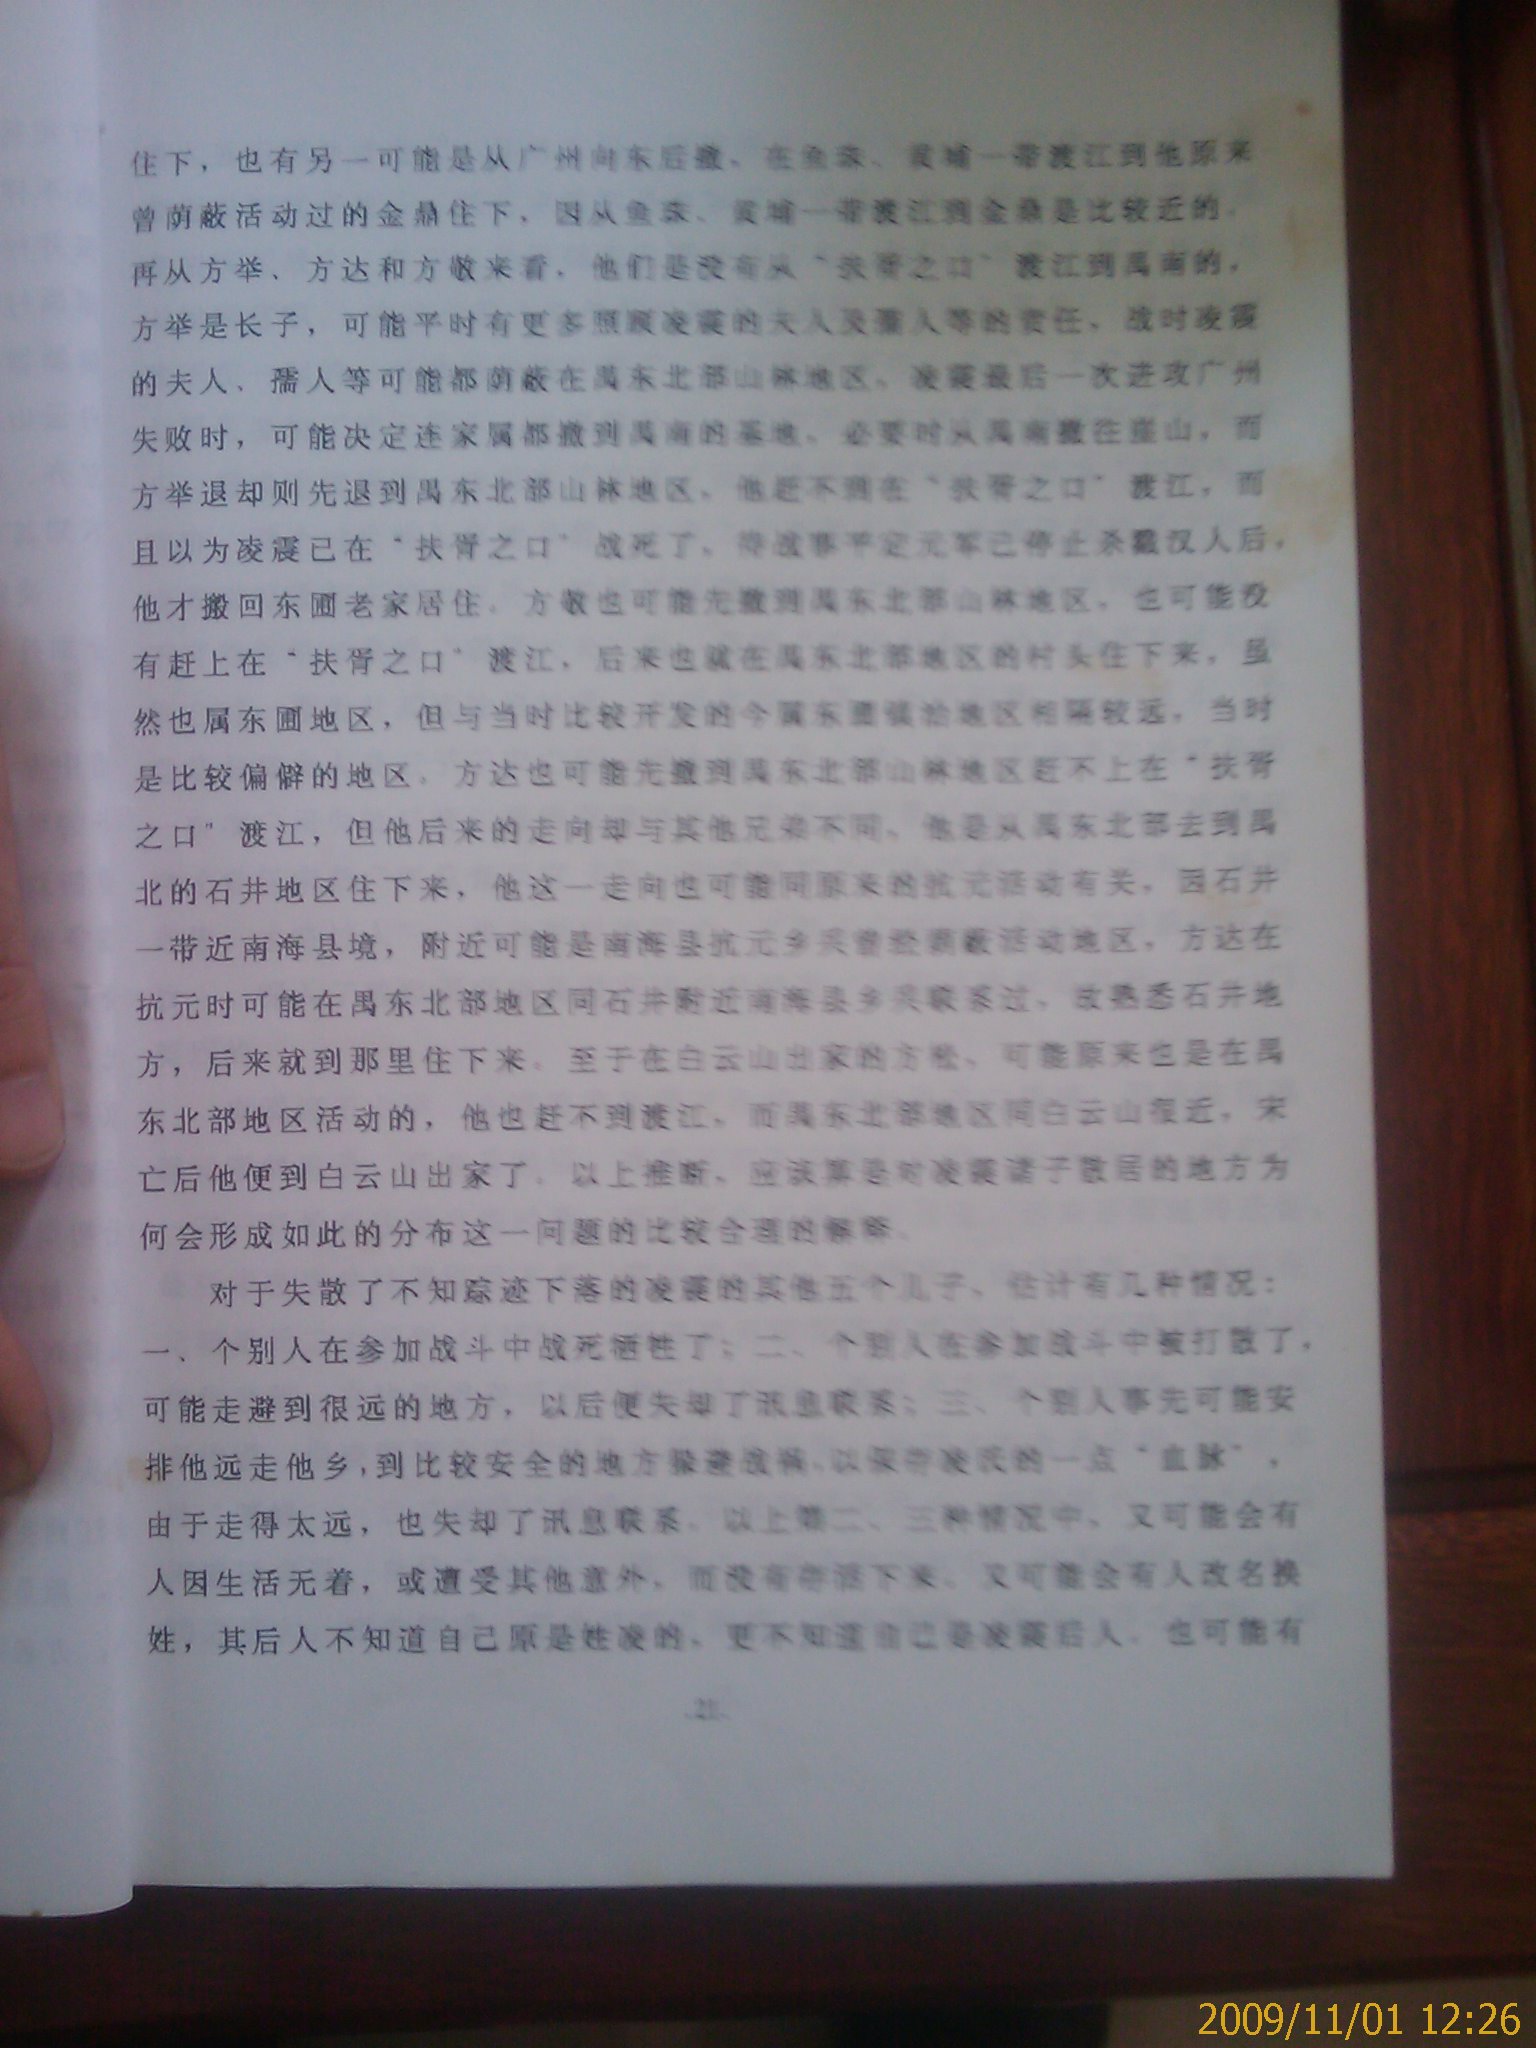 住下，也有另一可能是从广州向东后撤，在鱼珠、黄埔一带渡江到他原来
曾荫蔽活动过的金鼎住下，因从鱼珠、黄埔一带渡江到金桑是比较近的。
再从方举、方达和方敬来看，他们是没有从“扶胥之口”渡江到禺南的，
方举是长子，可能平时有更多照顾凌震的夫人及孺人等的责任，战时凌震
的夫人、孺人等可能都荫蔽在禺东北部山林地区，凌震最后一次进攻广州
失败时，可能决定连家属都撤到禺南的基地，必要时从禺南撤往崖山，而
方举退却则先退到禺东北部山林地区，他赶不到在“扶胥之口”渡江，而
且以为凌震已在“扶胥之口”战死了，待战事平定元军已停止杀戮汉人后，
他才搬回东圃老家居住。方敬也可能先撤到禺东北部山林地区，也可能没
有赶上在“扶胥之口”渡江，后来也就在禺东北部地区的村头住下来，虽
然也属东圃地区，但与当时比较开发的今属东圃镇的地区相隔较远，当时
是比较偏僻的地区。方达也可能先撤到禺东北部山林地区赶不上在“扶胥
之口”渡江，但他后来的走向却与其他兄弟不同，他是从禺东北部去到禺
北的石井地区住下来，他这一走向也可能同原来的抗元活动有关，因石井
一带近南海县境，附近可能是南海县抗元乡兵曾经荫蔽活动地区，方达在
抗元时可能在禺东北部地区同石井附近南海县乡兵联系过，故熟悉石井地
方，后来就到那里住下来。至于在白云山出家的方，可能原来也是在禺
东北部地区活动的，他也赶不到渡江，而禺东北部地区同白云山很近，宋
亡后他便到白云山出家了。以上推断，应该算是对凌震诸子散居的地方为
何会形成如此的分布这一问题的比较合理的解释。
对于失散了不知踪迹下落的凌震的其他五个儿子，估计有几种情况：
一、个别人在参加战斗中战死牺牲了；二、个别人在参加战斗中被打散了，
可能走避到很远的地方，以后便失却了讯息联系；三、个别人事先可能安
排他远走他乡，到比较安全的地方躲避战祸，以保存凌氏的一点“血脉”，
由于走得太远，也失却了讯息联系。以上第二、三种情况中，又可能会有
人因生活无着，或遭受其他意外，而没有存活下来，又可能会有人改名换
姓，其后人不知道自己原是姓凌的，更不知道自己是凌震后人。也可能有
2009/11/01 12:26